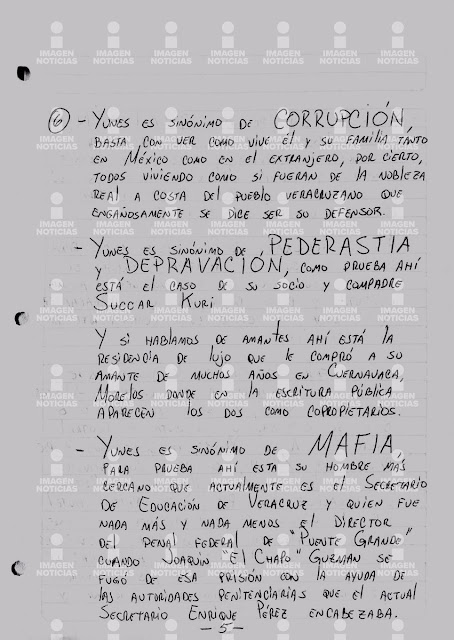 ⑥ - YUNES ES SINÓNIMO DE CORRUPCIÓN,
BASTA CON VER COMO VIVE ÉL Y SU FAMILIA TANTO
EN MÉXICO COMO EN EL EXTRANJERO, POR CIERTO,
TODOS VIVIENDO COMO SI FUERAN DE LA NOBLEZA
REAL A COSTA DEL PUEBLO VERACRUZANO QUE
ENGAÑOSAMENTE SE DICE SER SU DEFENSOR.
- YUNES ES SINÓNIMO DE PEDERASTIA
Y DEPRAVACIÓN, COMO PRUEBA AHÍ
ESTÁ EL CASO DE SU SOCIO Y COMPADRE
SUCCAR KURI
Y SI HABLAMOS DE AMANTES AHÍ ESTÁ LA
RESIDENCIA DE LUJO QUE LE COMPRÓ A SU
AMANTE DE MUCHOS AÑOS EN CUERNAVACA,
MORELOS DONDE EN LA ESCRITURA PÚBLICA
APARECEN LOS DOS COMO COPROPIETARIOS.
- YUNES ES SINÓNIMO DE MAFIA,
PARA PRUEBA AHÍ ESTA SU HOMBRE MÁS
CERCANO QUE ACTUALMENTE ES EL SECRETARIO
DE EDUCACIÓN DE VERACRUZ Y QUIEN FUE
NADA MÁS Y NADA MENOS EL DIRECTOR
DEL PENAL FEDERAL DE "PUENTE GRANDE"
CUANDO JOAQUÍN "EL CHAPO" GUZMÁN SE
FUGÓ DE ESA PRISIÓN CON LA AYUDA DE
LAS AUTORIDADES PENITENCIARIAS QUE EL ACTUAL
SECRETARIO ENRIQUE PÉREZ ENCABEZABA.
- 5 -
IMAGEN
NOTICIAS